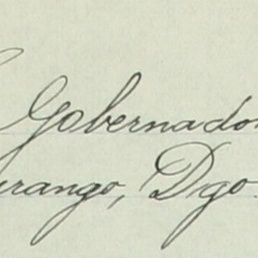 Gobernador
Durango, Dgo.